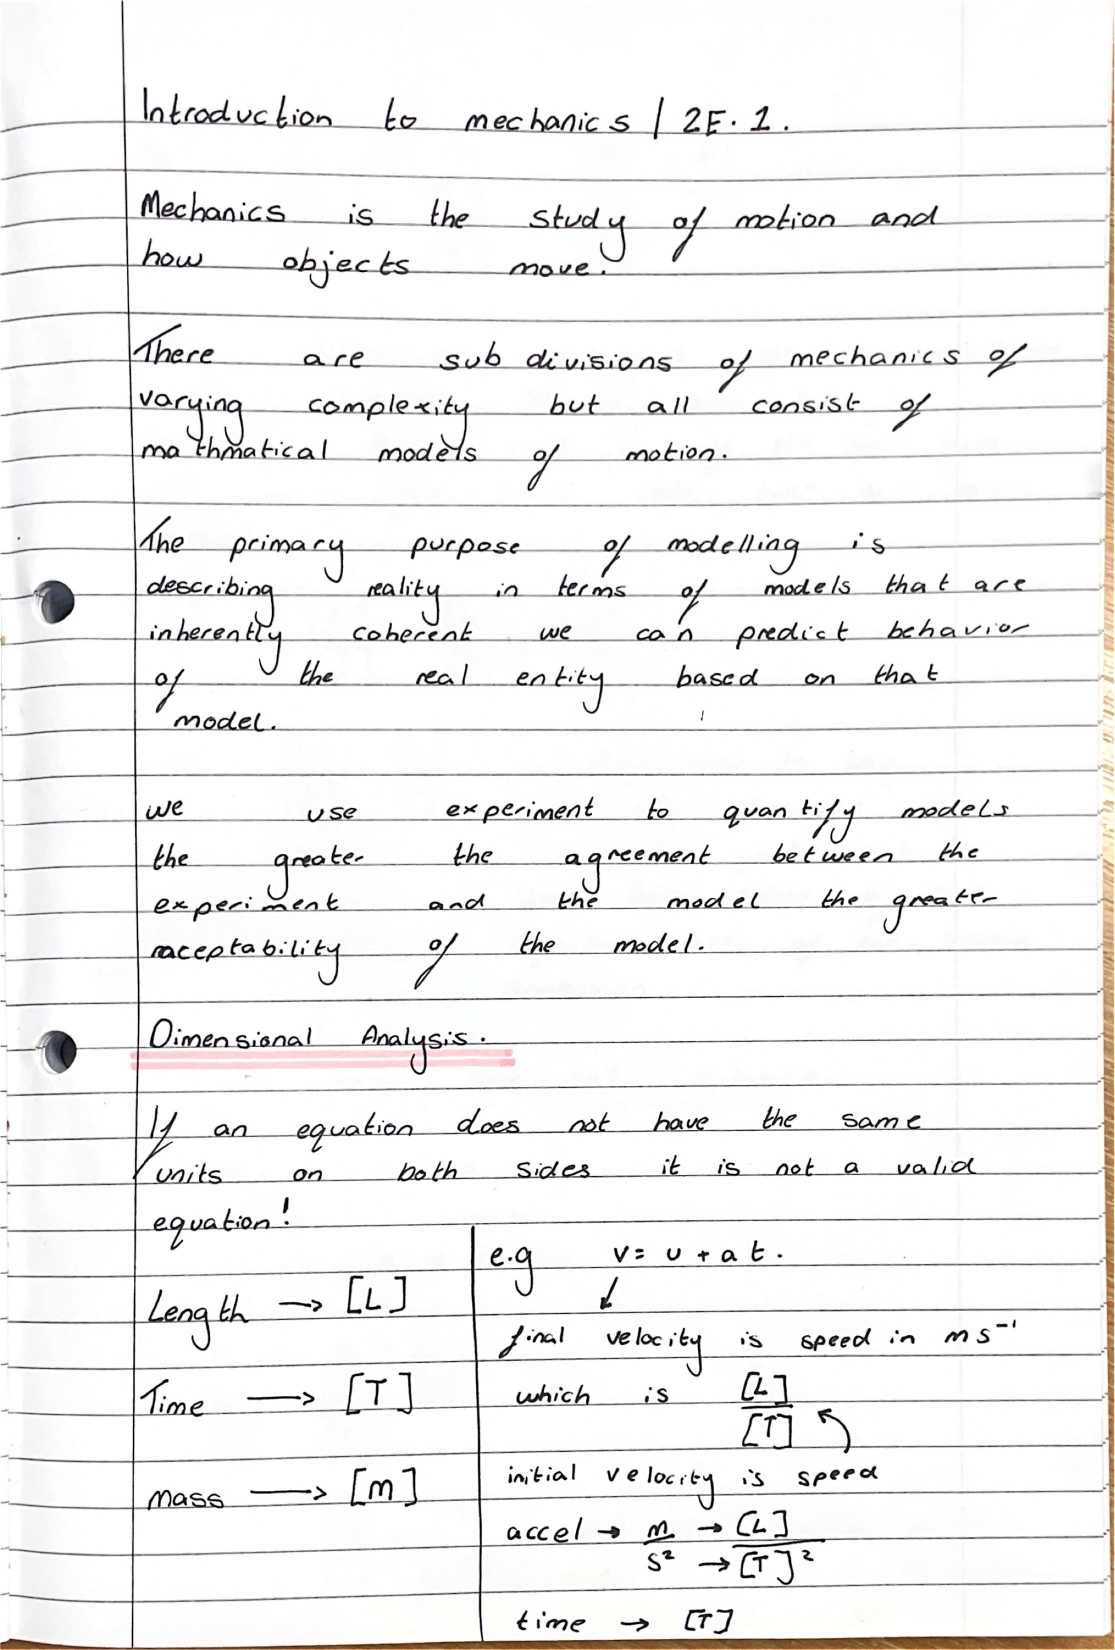 Introduction to mechanics | 2E.1.
Mechanics is the study of motion and
how objects move.
There are sub divisions of mechanics of
varying complexity but all consist of
mathmatical models of motion.
The primary purpose of modelling is
describing reality in terms of models that are
inherently coherent we can predict behavior
of the real entity based on that
model.
we use experiment to quantify models
the greater the agreement between the
experiment and the model the greater
acceptability of the model.
Dimensional Analysis.
If an equation does not have the same
units on both sides it is not a valid
equation!
Length → [L]
Time → [T]
mass → [m]
e.g v = u + a t.
↓
final velocity is speed in ms⁻¹
which is [L]
[T]
initial velocity is speed
accel → m → [L]
s² → [T]²
time → [T]